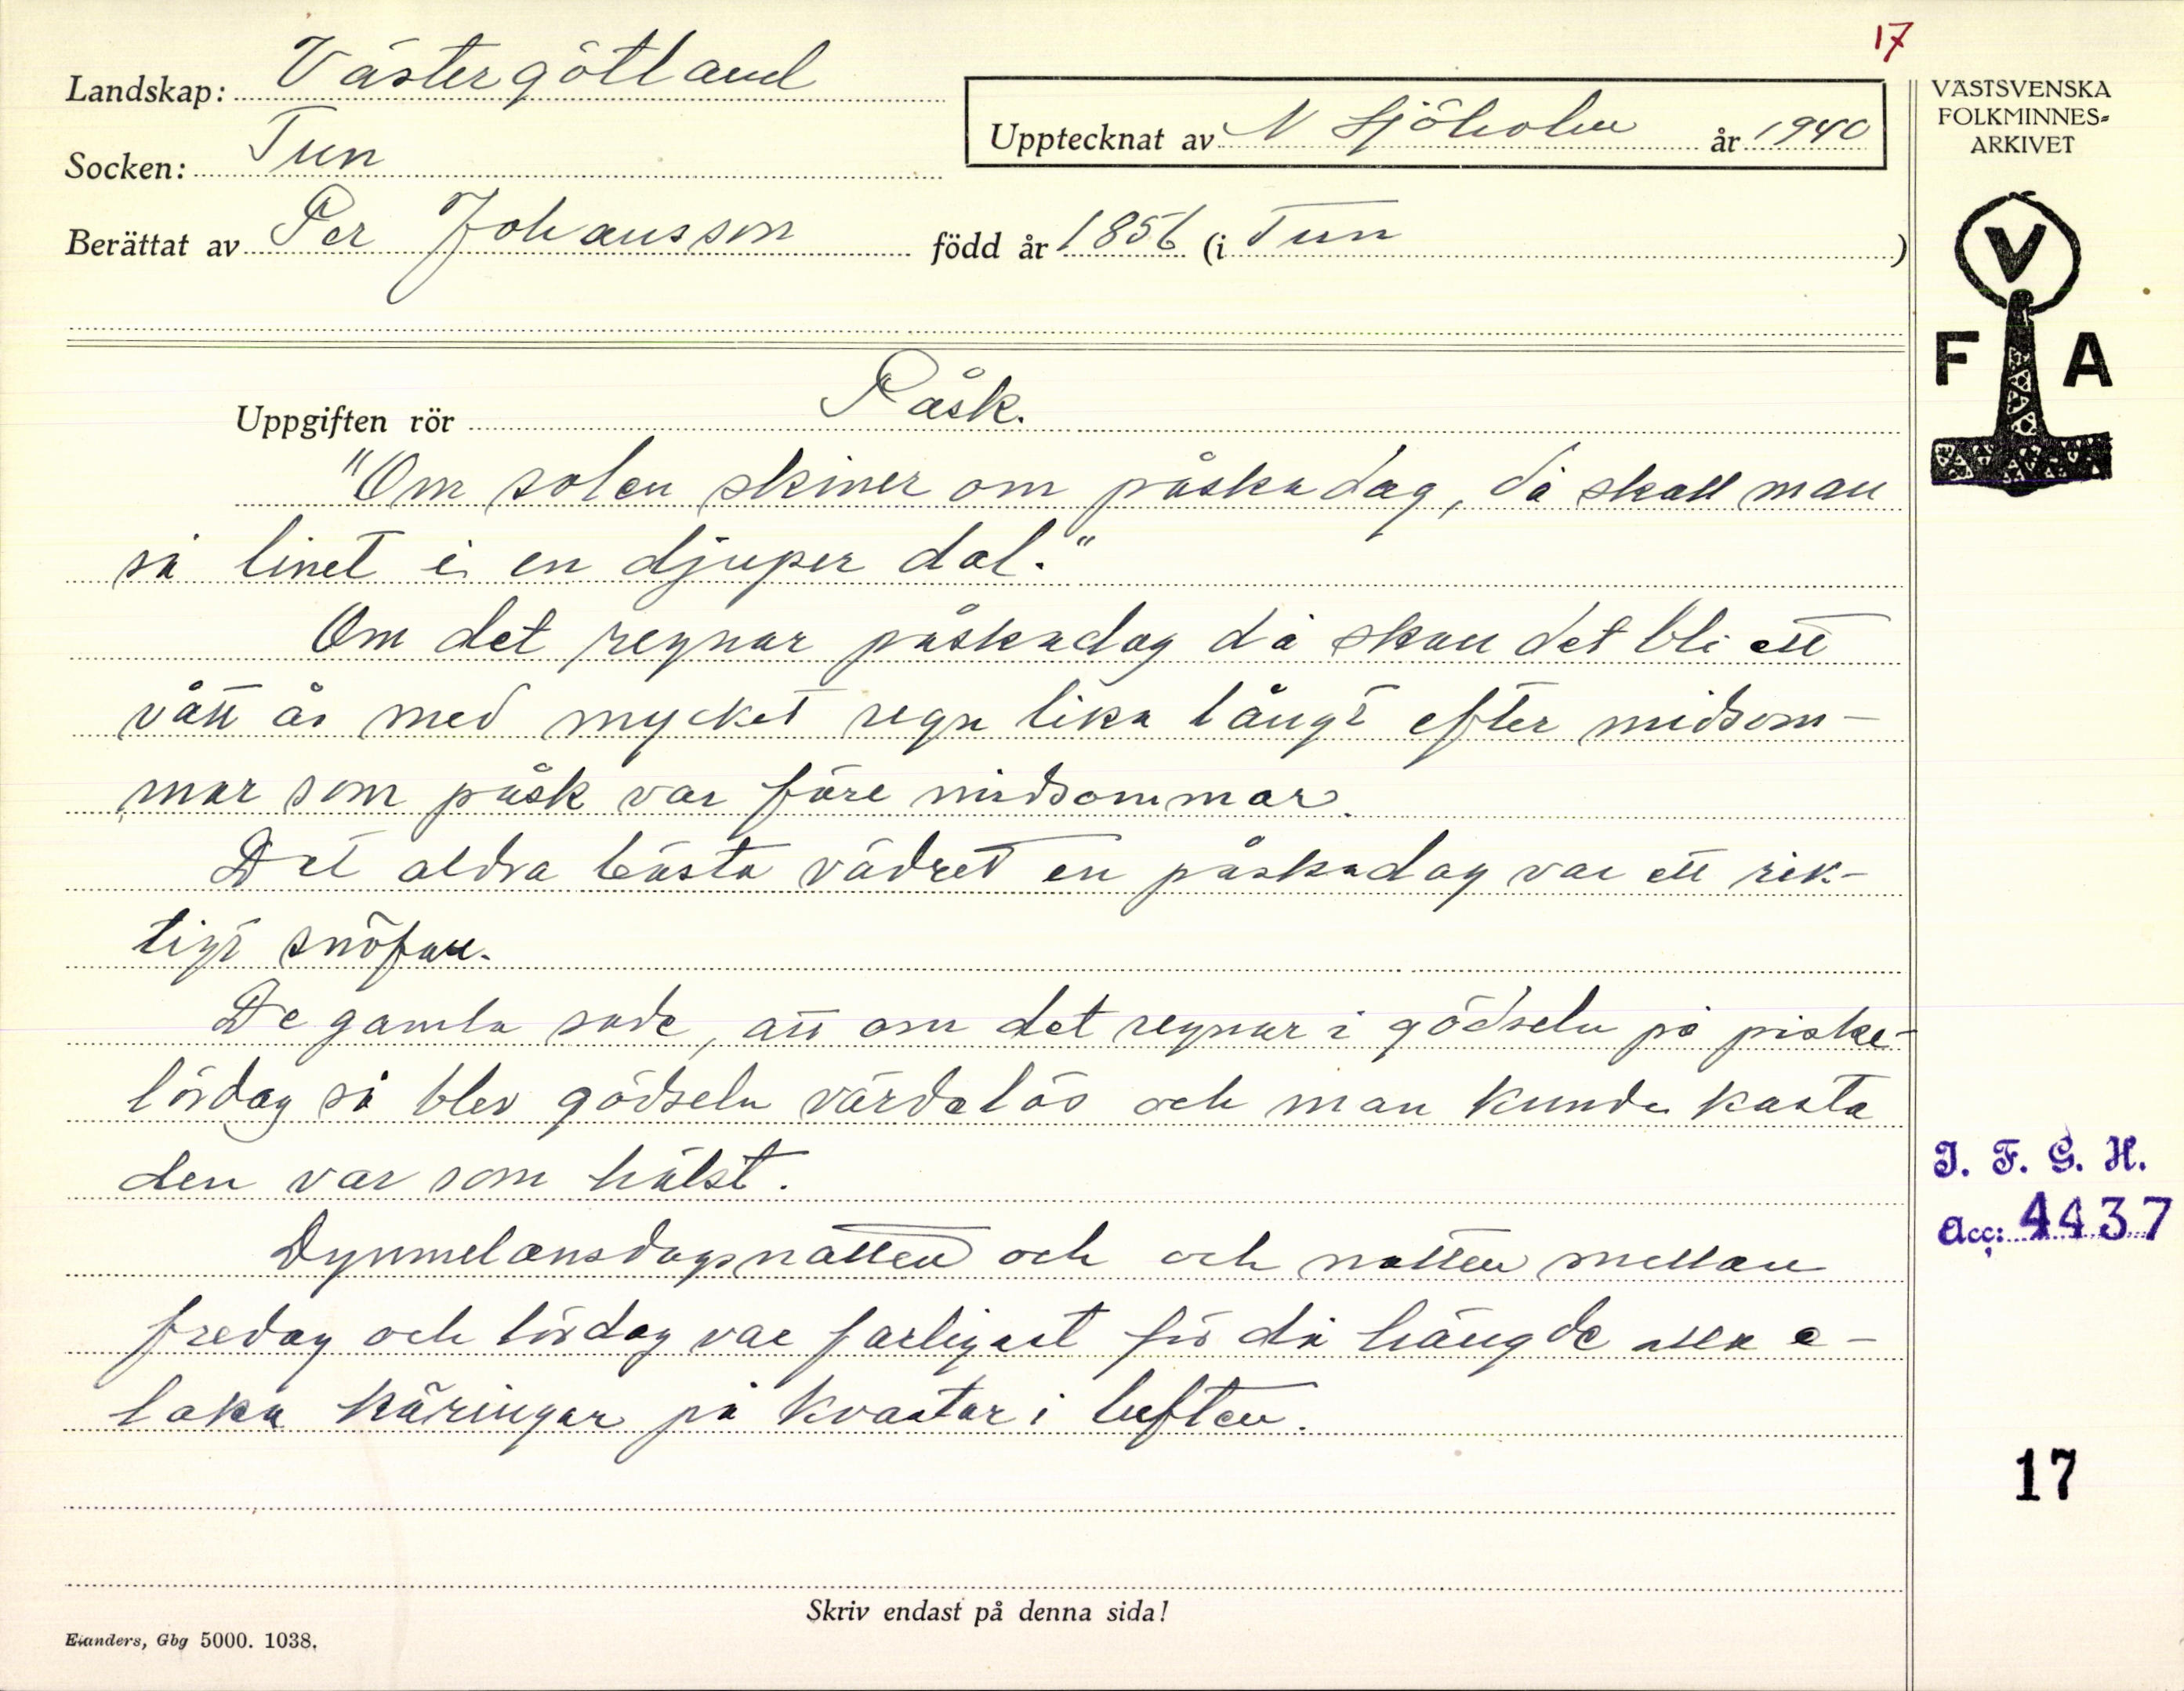 17
Landskap: Västergötland
Socken: Tun
Upptecknat av N Sjöholm år 1940
Berättat av Per Johansson född år 1856 (i Tun)
VÄSTSVENSKA
FOLKMINNES=
ARKIVET
V
F A
Uppgiften rör Påsk.
"Om solen skiner om påskadag, då skall man
så linet i en djuper dal."
Om det regnar påskadag då skall det bli ett
vått år med mycket regn lika långt efter midsom-
mar som påsk var före midsommar.
Det aldra bästa vädret en påskadag var ett rik-
tigt snöfall.
De gamla sade, att om det regnar i gödseln på påske-
lördag så blev gödseln värdelös och man kunde kasta
den var som hälst.
Dymmelonsdagsnatten och och natten mellan
fredag och lördag var farligast för då hängde alla e-
laka käringar på kvastar i luften.
I. F. G. H.
Acc: 4437
17
Skriv endast på denna sida!
Elanders, Gbg 5000. 1038.